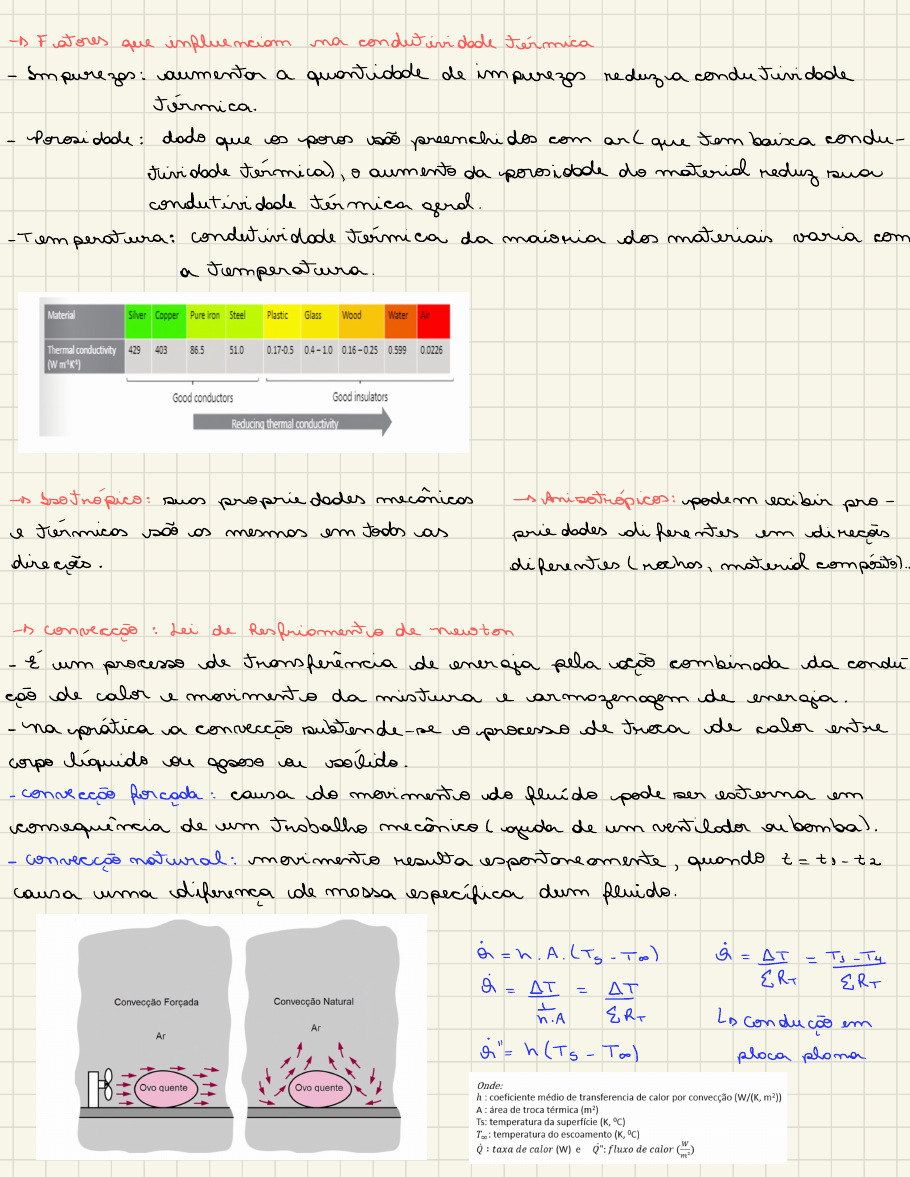 → Fatores que influenciam na condutividade térmica
- Impurezas: aumentar a quantidade de impurezas reduz a condutividade
térmica.
- Porosidade: dado que os poros são preenchidos com ar (que tem baixa condu-
tividade térmica), o aumento da porosidade do material reduz sua
condutividade térmica geral.
- Temperatura: condutividade térmica da maioria dos materiais varia com
a temperatura.
Material Silver Copper Pure iron Steel Plastic Glass Wood Water Air
Thermal conductivity (W m⁻¹K⁻¹) 429 403 86.5 51.0 0.17-0.5 0.4 – 1.0 0.16 – 0.25 0.599 0.0226
Good conductors Good insulators
Reducing thermal conductivity
→ Isotrópico: suas propriedades mecânicas
e térmicas são as mesmas em todas as
direções.
→ Anisotrópicos: podem exibir pro-
priedades diferentes em direções
diferentes (rochas, material compósito)..
→ Convecção: Lei de Resfriamento de newton
- É um processo de transferência de energia pela ação combinada da condu-
ção de calor e movimento da mistura e armazenagem de energia.
- na prática a convecção subtende-se o processo de troca de calor entre
corpo líquido ou gasoso ou sólido.
- convecção forçada: causa do movimento do fluído pode ser externa em
consequência de um trabalho mecânico (ajuda de um ventilador ou bomba).
- convecção natural: movimento resulta espontaneamente, quando t = t₁ - t₂
causa uma diferença de massa específica dum fluido.
Convecção Forçada
Ar
Ovo quente
Convecção Natural
Ar
Ovo quente
Q̇ = h.A.(Ts - T∞)
Q̇ = ΔT / (1/h.A) = ΔT / ΣRT
Q̇" = h(Ts - T∞)
Q̇ = ΔT / ΣRT = (T₁ - T₄) / ΣRT
↳ Condução em
placa plana
Onde:
h : coeficiente médio de transferencia de calor por convecção (W/(K, m²))
A : área de troca térmica (m²)
Ts: temperatura da superfície (K, ⁰C)
T∞ : temperatura do escoamento (K, ⁰C)
Q̇ : taxa de calor (W) e Q̇": fluxo de calor (W/m²)